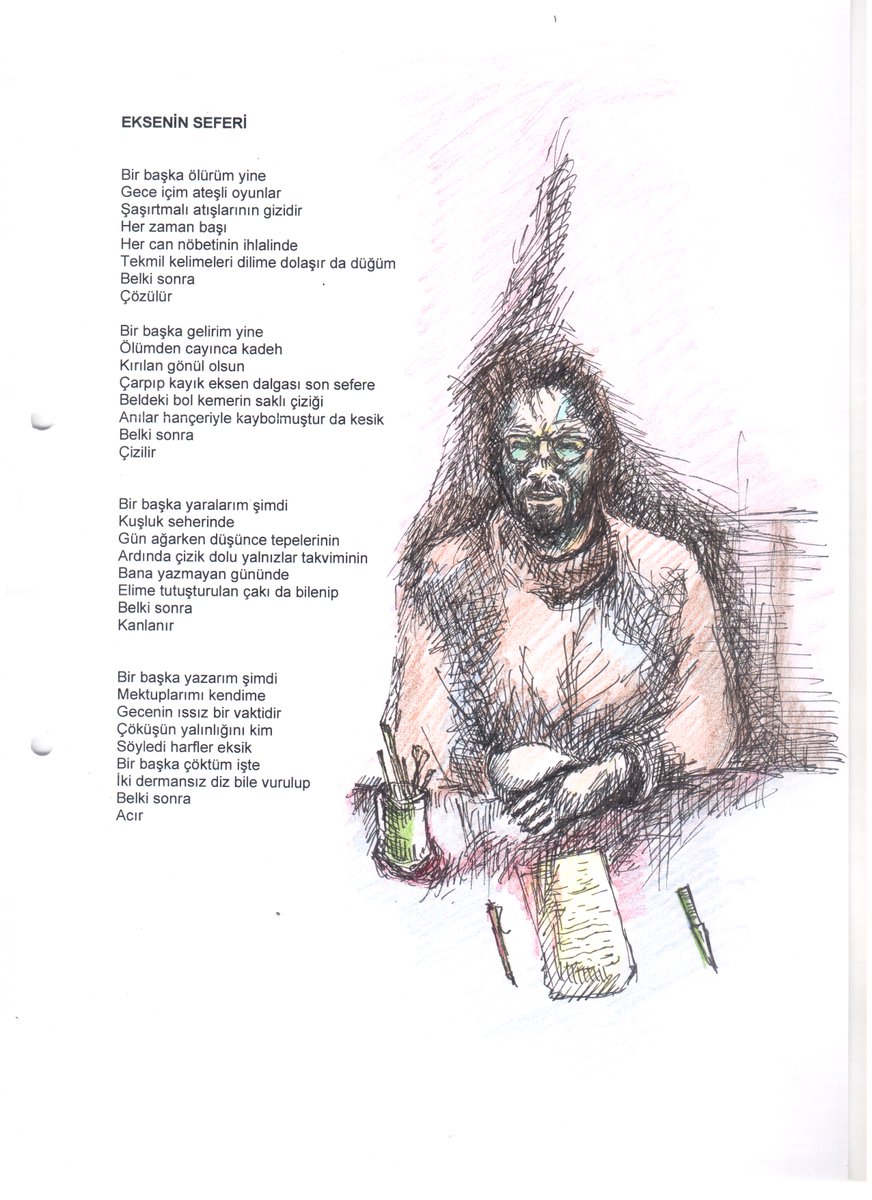 EKSENİN SEFERİ
Bir başka ölürüm yine
Gece içim ateşli oyunlar
Şaşırtmalı atışlarının gizidir
Her zaman başı
Her can nöbetinin ihlalinde
Tekmil kelimeleri dilime dolaşır da düğüm
Belki sonra
Çözülür
Bir başka gelirim yine
Ölümden cayınca kadeh
Kırılan gönül olsun
Çarpıp kayık eksen dalgası son sefere
Beldeki bol kemerin saklı çiziği
Anılar hançeriyle kaybolmuştur da kesik
Belki sonra
Çizilir
Bir başka yaralarım şimdi
Kuşluk seherinde
Gün ağarken düşünce tepelerinin
Ardında çizik dolu yalnızlar takviminin
Bana yazmayan gününde
Elime tutuşturulan çakı da bilenip
Belki sonra
Kanlanır
Bir başka yazarım şimdi
Mektuplarımı kendime
Gecenin ıssız bir vaktidir
Çöküşün yalınlığını kim
Söyledi harfler eksik
Bir başka çöktüm işte
İki dermansız diz bile vurulup
Belki sonra
Acır